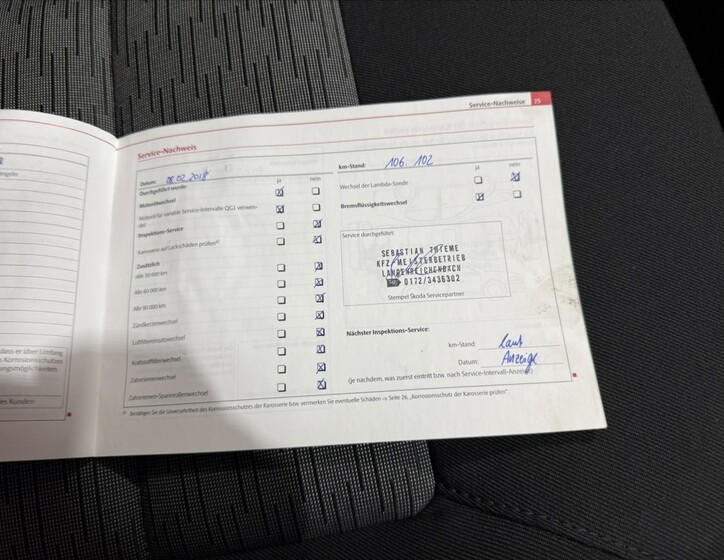 Service-Nachweise 25
Service-Nachweis
Datum: 08.02.2018
km-Stand: 106.102
Durchgeführt wurde: ja nein
Motorölwechsel
Motoröl für variable Service-Intervalle QG1 verwen-
det
Inspektions-Service
Karosserie auf Lackschäden prüfen
Zusätzlich
Alle 30 000 km
Alle 60 000 km
Alle 90 000 km
Zündkerzenwechsel
Luftfiltereinsatzwechsel
Kraftstofffilterwechsel
Zahnriemenwechsel
Zahnriemen-Spannrollenwechsel
ja nein
Wechsel der Lambda-Sonde
Bremsflüssigkeitswechsel
Service durchgeführt:
SEBASTIAN THIEME
KFZ-MEISTERBETRIEB
LANGENREICHENBACH
0172/3436302
Stempel Škoda Servicepartner
Nächster Inspektions-Service:
km-Stand: laut
Datum: Anzeige
(je nachdem, was zuerst eintritt bzw. nach Service-Intervall-Anzeige)
Bestätigen Sie die Unversehrtheit des Korrosionsschutzes der Karosserie bzw. vermerken Sie eventuelle Schäden ⇒ Seite 26, „Korrosionsschutz der Karosserie prüfen".
dass er über Umfang
s Korrosionsschutzes
ungsmöglichkeiten
es Kunden